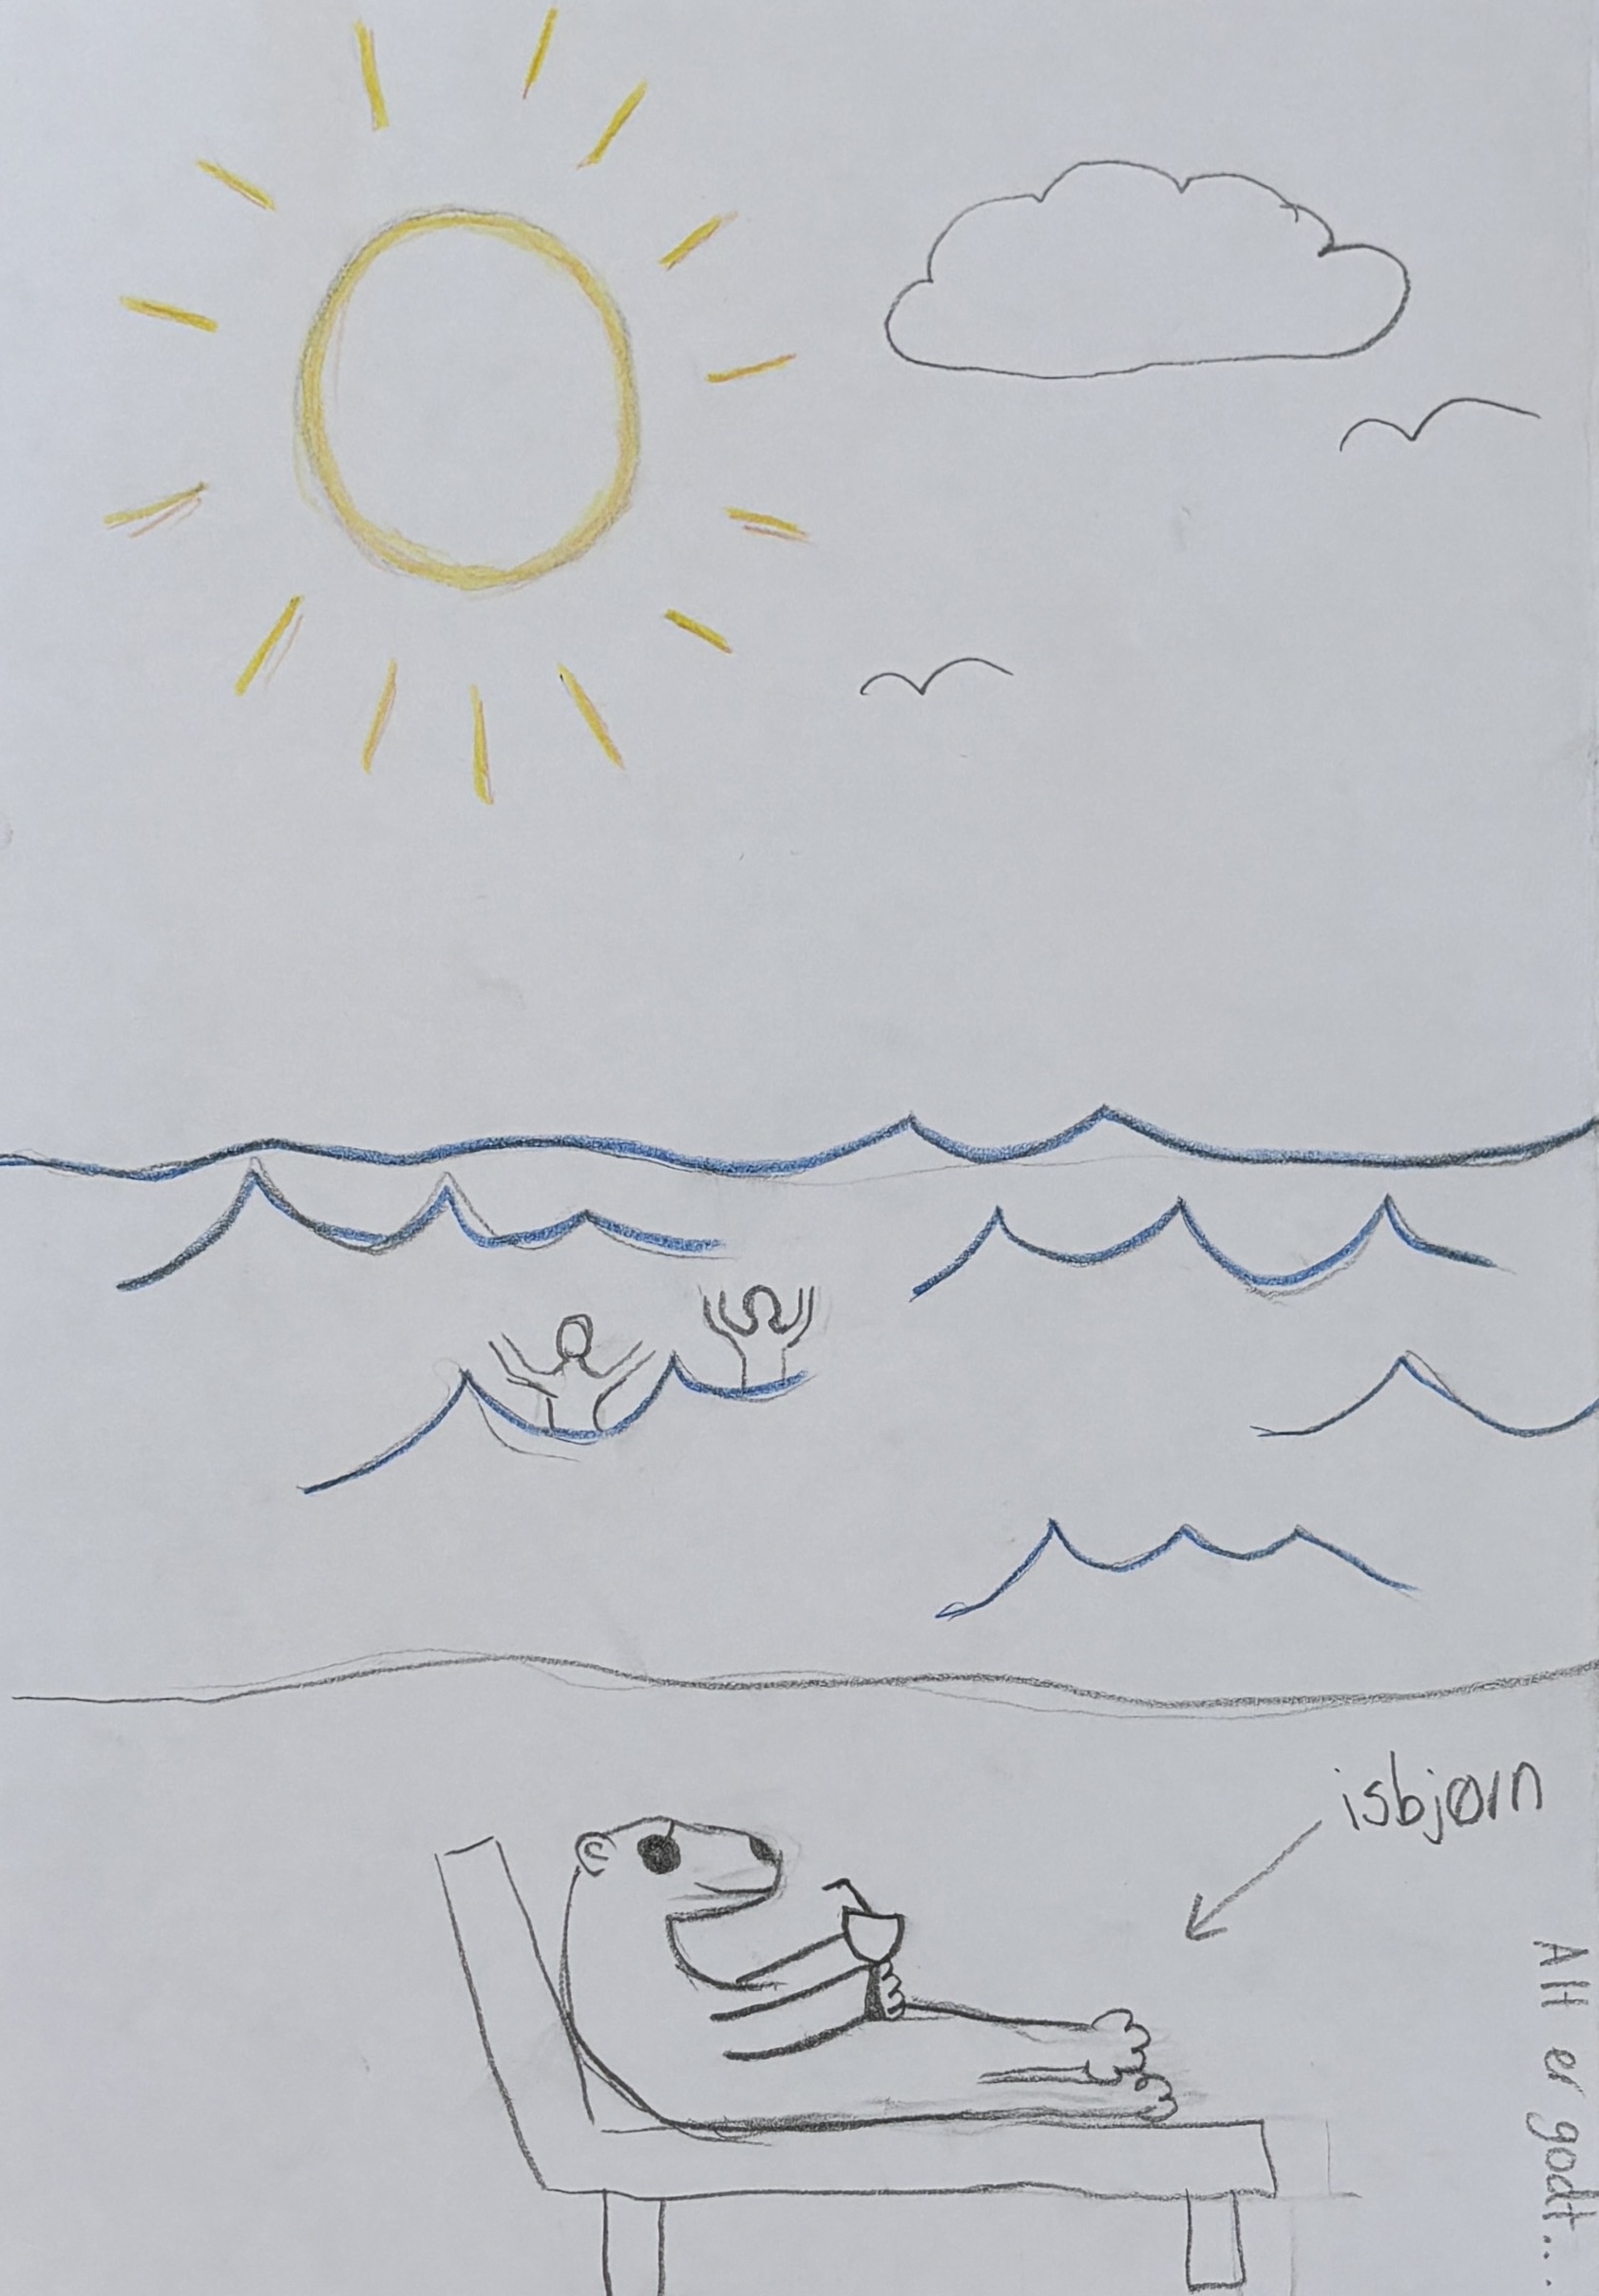 isbjørn
Alt er godt...